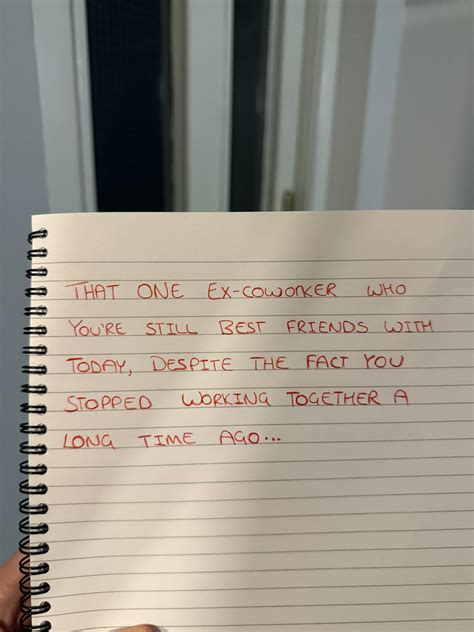 THAT ONE EX-COWORKER WHO
YOU'RE STILL BEST FRIENDS WITH
TODAY, DESPITE THE FACT YOU
STOPPED WORKING TOGETHER A
LONG TIME AGO...